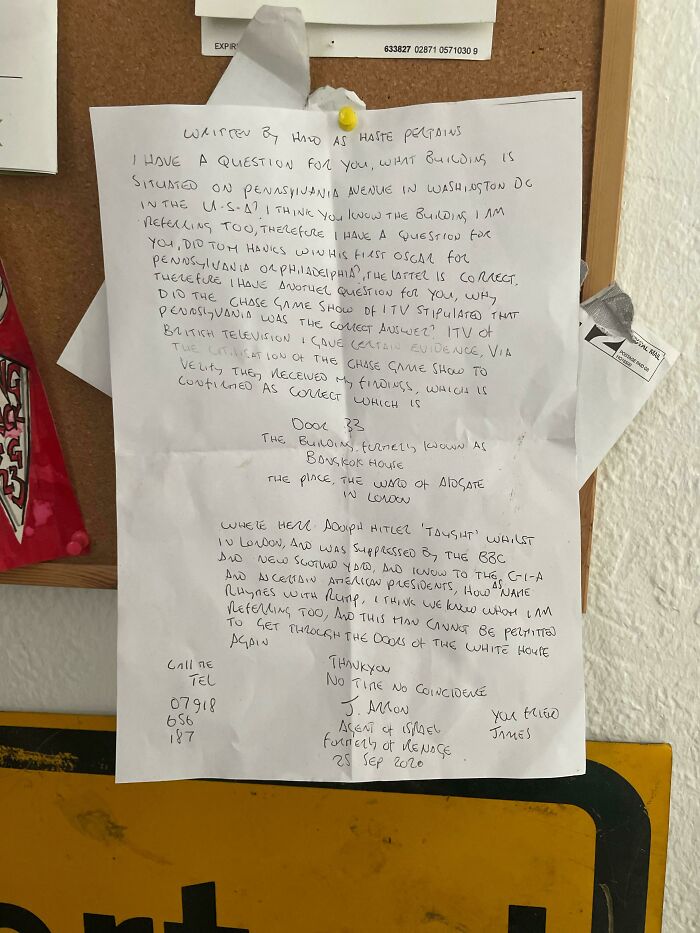 EXPIR
633827 02871 0571030 9
WRITTEN BY HAND AS HASTE PERTAINS
I HAVE A QUESTION FOR YOU, WHAT BUILDING IS
SITUATED ON PENNSYLVANIA AVENUE IN WASHINGTON DC
IN THE U.S.A?, I THINK YOU KNOW THE BUILDING I AM
REFERRING TOO, THEREFORE I HAVE A QUESTION FOR
YOU, DID TOM HANKS WIN HIS FIRST OSCAR FOR
PENNSYLVANIA OR PHILADELPHIA?, THE LATTER IS CORRECT.
THEREFORE I HAVE ANOTHER QUESTION FOR YOU, WHY
DID THE CHASE GAME SHOW OF ITV STIPULATED THAT
PENNSYLVANIA WAS THE CORRECT ANSWER? ITV OF
BRITISH TELEVISION I GAVE CERTAIN EVIDENCE, VIA
THE UTILISATION OF THE CHASE GAME SHOW TO
VERIFY THEY RECEIVED MY FINDINGS, WHICH IS
CONFIRMED AS CORRECT WHICH IS
DOOR 33
THE BUILDING, FORMERLY KNOWN AS
BANGKOK HOUSE
THE PLACE, THE WARD OF ALDGATE
IN LONDON
WHERE HERR ADOLPH HITLER 'TAUGHT' WHILST
IN LONDON, AND WAS SUPPRESSED BY THE BBC
AND NEW SCOTLAND YARD, AND KNOW TO THE C-I-A
AND ASCERTAIN AMERICAN PRESIDENTS, HOW AS NAME
RHYMES WITH RUMP, I THINK WE KNOW WHOM I AM
REFERRING TOO, AND THIS MAN CANNOT BE PERMITTED
TO GET THROUGH THE DOORS OF THE WHITE HOUSE
AGAIN
CALL ME
TEL
07918
656
187
THANKYOU
NO TIME NO COINCIDENCE
J. ARRON
AGENT OF ISRAEL
FORMERLY OF
25 SEP 2020
YOUR FRIEND
JAMES
ROYAL MAIL
POSTAGE PAID GB